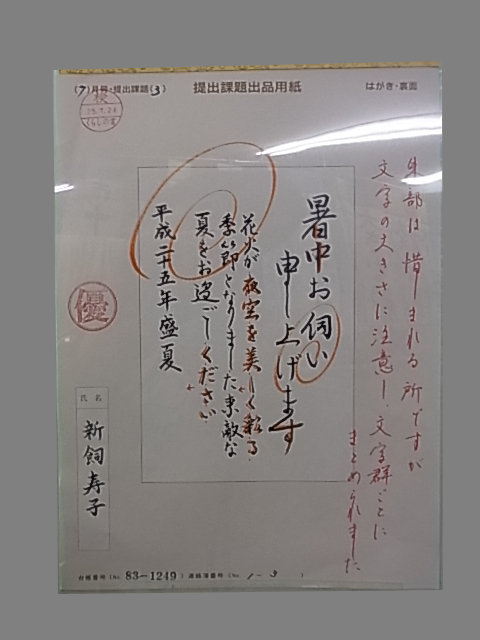 (7)月号・提出課題(3)
提出課題出品用紙
はがき・裏面
25.7.24
くらしの書
朱部は惜しまれる所ですが
文字の大きさに注意し、文字群ごとに
まとめられました
暑中お伺い
申し上げます
花火が夜空を美しく彩る
季節となりました素敵な
夏をお過ごしください
平成二十五年盛夏
優
氏名
新飼寿子
台帳番号(No. 83-1249)連絡簿番号(No. 1-3)